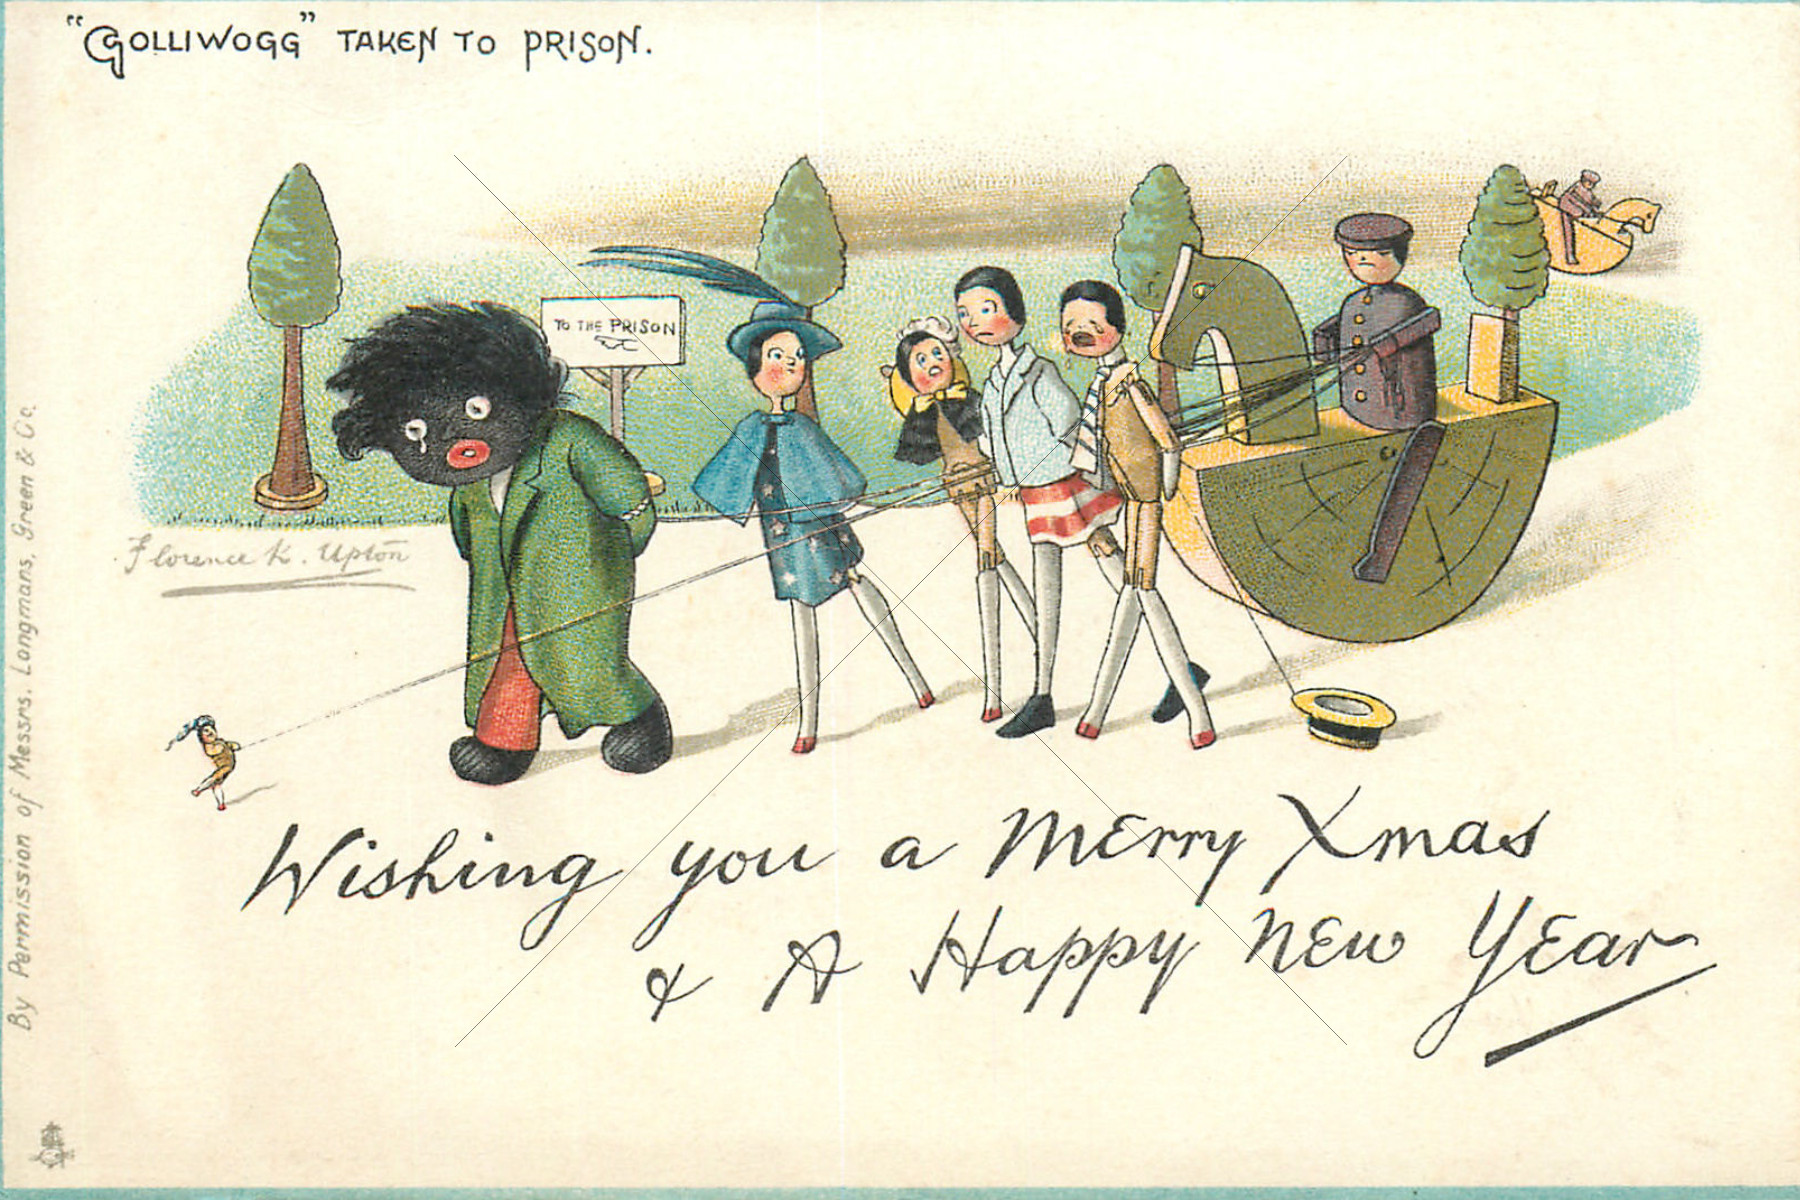 "GOLLIWOGG" TAKEN TO PRISON.
TO THE PRISON
Florence K. Upton
Wishing you a merry Xmas
& A Happy New Year
By Permission of Messrs. Longmans, Green & Co.